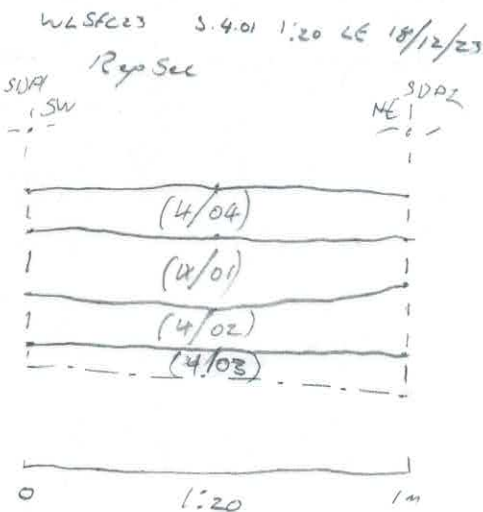 WLSFC23 S.4.01 1:20 LE 18/12/23
Rep Sec
SDP1 SDP2
SW NE
(4/04)
(4/01)
(4/02)
(4/03)
0 1:20 1m